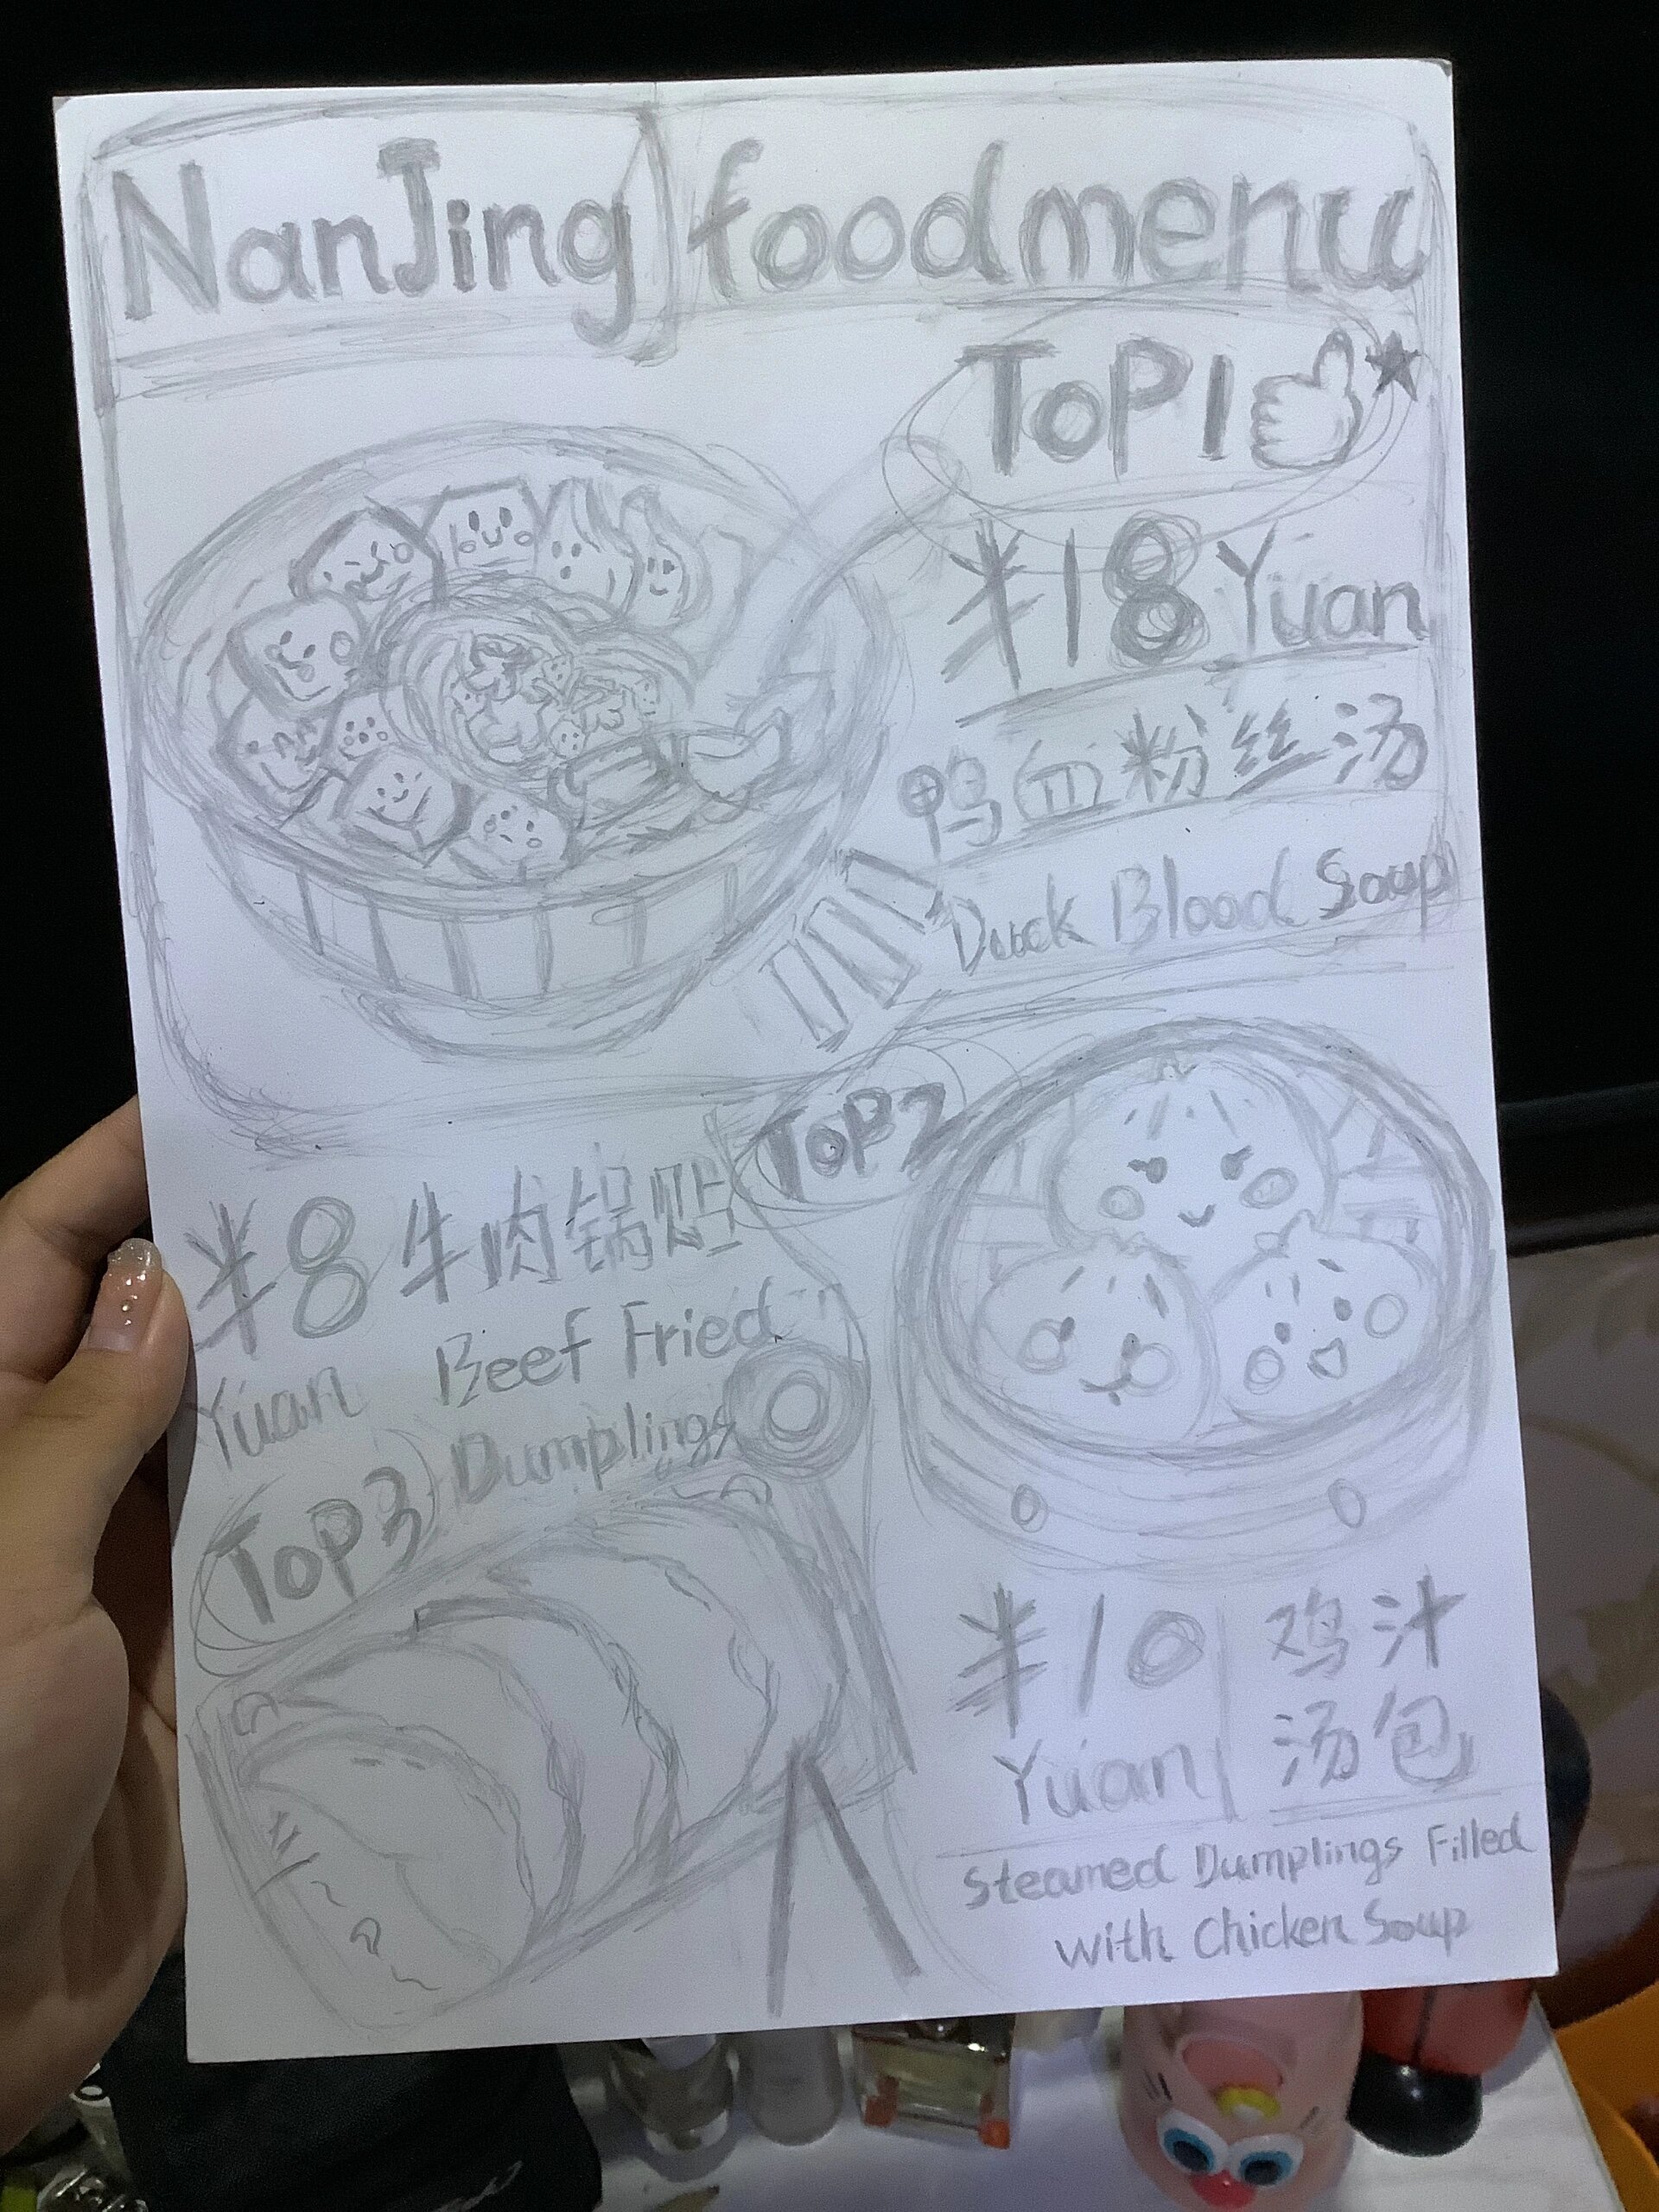 NanJing food menu
ToP1
¥18 Yuan
鸭血粉丝汤
Duck Blood Soup
ToP2
¥10
Yuan
鸡汁
汤包
Steamed Dumplings Filled
with Chicken Soup
¥8 牛肉锅贴
Yuan Beef Fried
Dumplings
ToP3